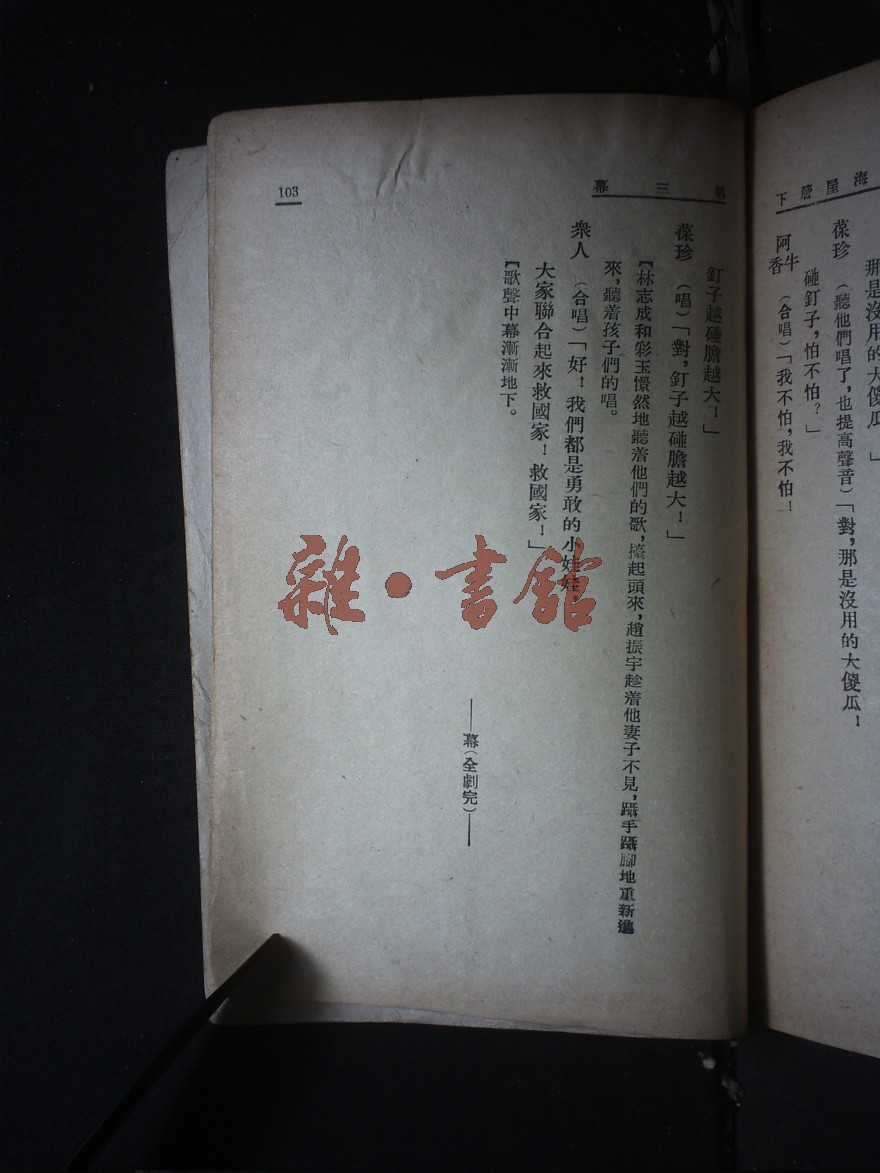 海屋簷下
那是沒用的大傻瓜 」
葆珍 (聽他們唱了,也提高聲音)「對,那是沒用的大傻瓜!
碰釘子,怕不怕?」
阿牛
香 (合唱)「我不怕,我不怕!
第三幕
103
釘子越碰膽越大!」
葆珍 (唱)「對,釘子越碰膽越大!」
【林志成和彩玉憬然地聽着他們的歌,擡起頭來,趙振宇趁着他妻子不見,躡手躡脚地重新進
來,聽着孩子們的唱。
衆人 (合唱)「好!我們都是勇敢的小娃娃,
大家聯合起來救國家!救國家!」
【歌聲中幕漸漸地下。
——幕(全劇完)——
雜·書館